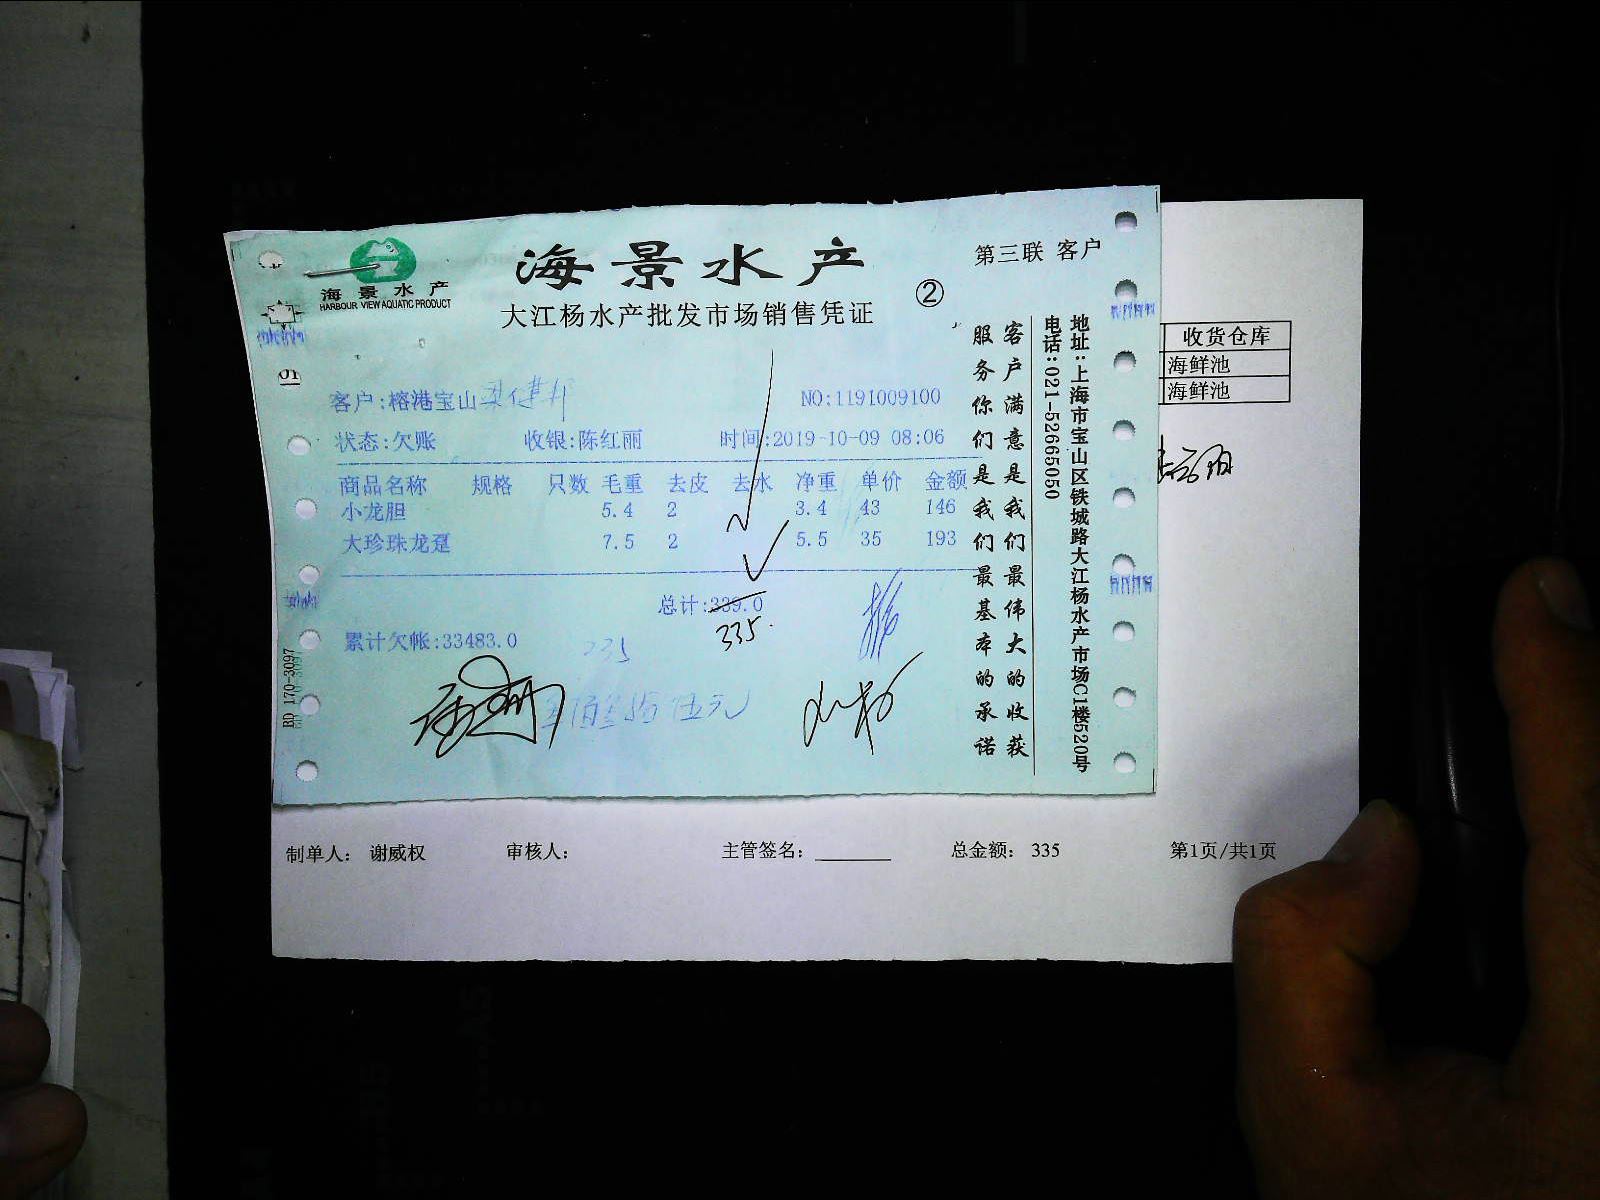 海景水产
HARBOUR VIEW AQUATIC PRODUCT
海景水产
大江杨水产批发市场销售凭证
②
第三联 客户
客户:榕港宝山
NO:1191009100
状态:欠账 收银:陈红丽 时间:2019-10-09 08:06
商品名称 规格 只数 毛重 去皮 去水 净重 单价 金额
小龙胆 5.4 2 3.4 43 146
大珍珠龙趸 7.5 2 5.5 35 193
总计:339.0
335.
累计欠帐:33483.0
客户满意是我们最伟大的收获
服务你们是我们最基本的承诺
地址:上海市宝山区铁城路大江杨水产市场C1楼520号
电话:021-52665050
01
BD 170-3097
收货仓库
海鲜池
海鲜池
制单人: 谢威权 审核人: 主管签名: 总金额: 335 第1页/共1页